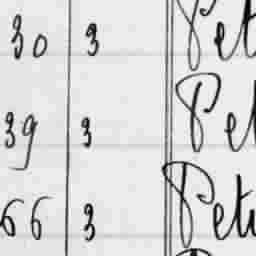 30 3 Pet
39 3 Pet
66 3 Pet